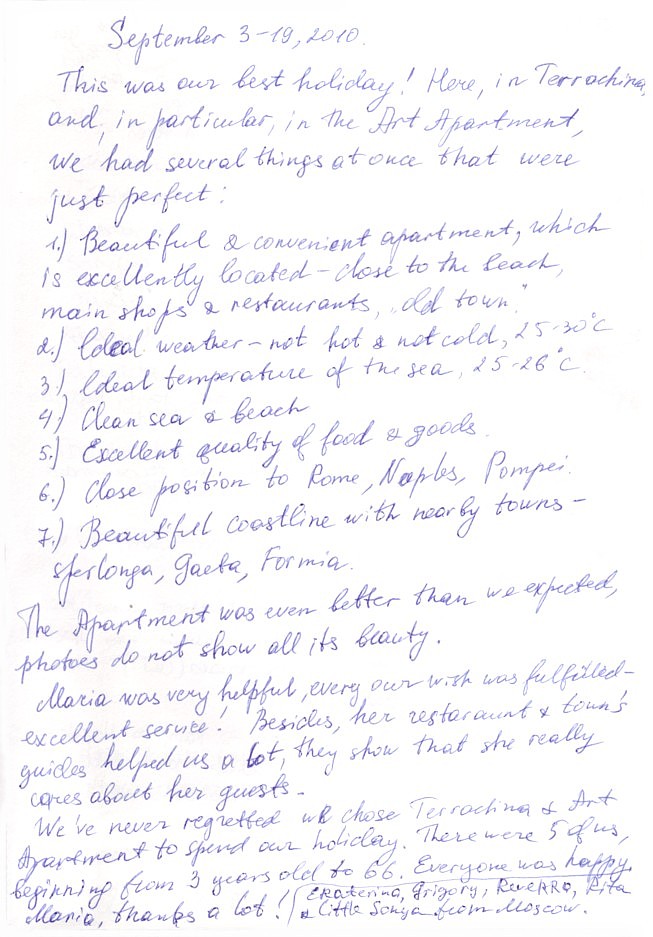 September 3-19, 2010.
This was our best holiday! Here, in Terrachina,
and, in particular, in the Art Apartment,
we had several things at once that were
just perfect:
1.) Beautiful & convenient apartment, which
is excellently located - close to the beach,
main shops & restaurants, „old town"
2.) Ideal weather - not hot & not cold, 25-30°C
3.) Ideal temperature of the sea, 25-26°C.
4.) Clean sea & beach
5.) Excellent quality of food & goods.
6.) Close position to Rome, Naples, Pompei.
7.) Beautiful coastline with nearby towns -
Sperlonga, Gaeta, Formia.
The Apartment was even better than we expected,
photoes do not show all its beauty.
Maria was very helpful, every our wish was fulfilled -
excellent service! Besides, her restaraunt & town's
guides helped us a lot, they show that she really
cares about her guests.
We've never regretted we chose Terrachina & Art
Apartment to spend our holiday. There were 5 of us,
beginning from 3 years old to 66. Everyone was happy.
Maria, thanks a lot! Ekaterina, Grigory, Rita
& Little Sonya from Moscow.